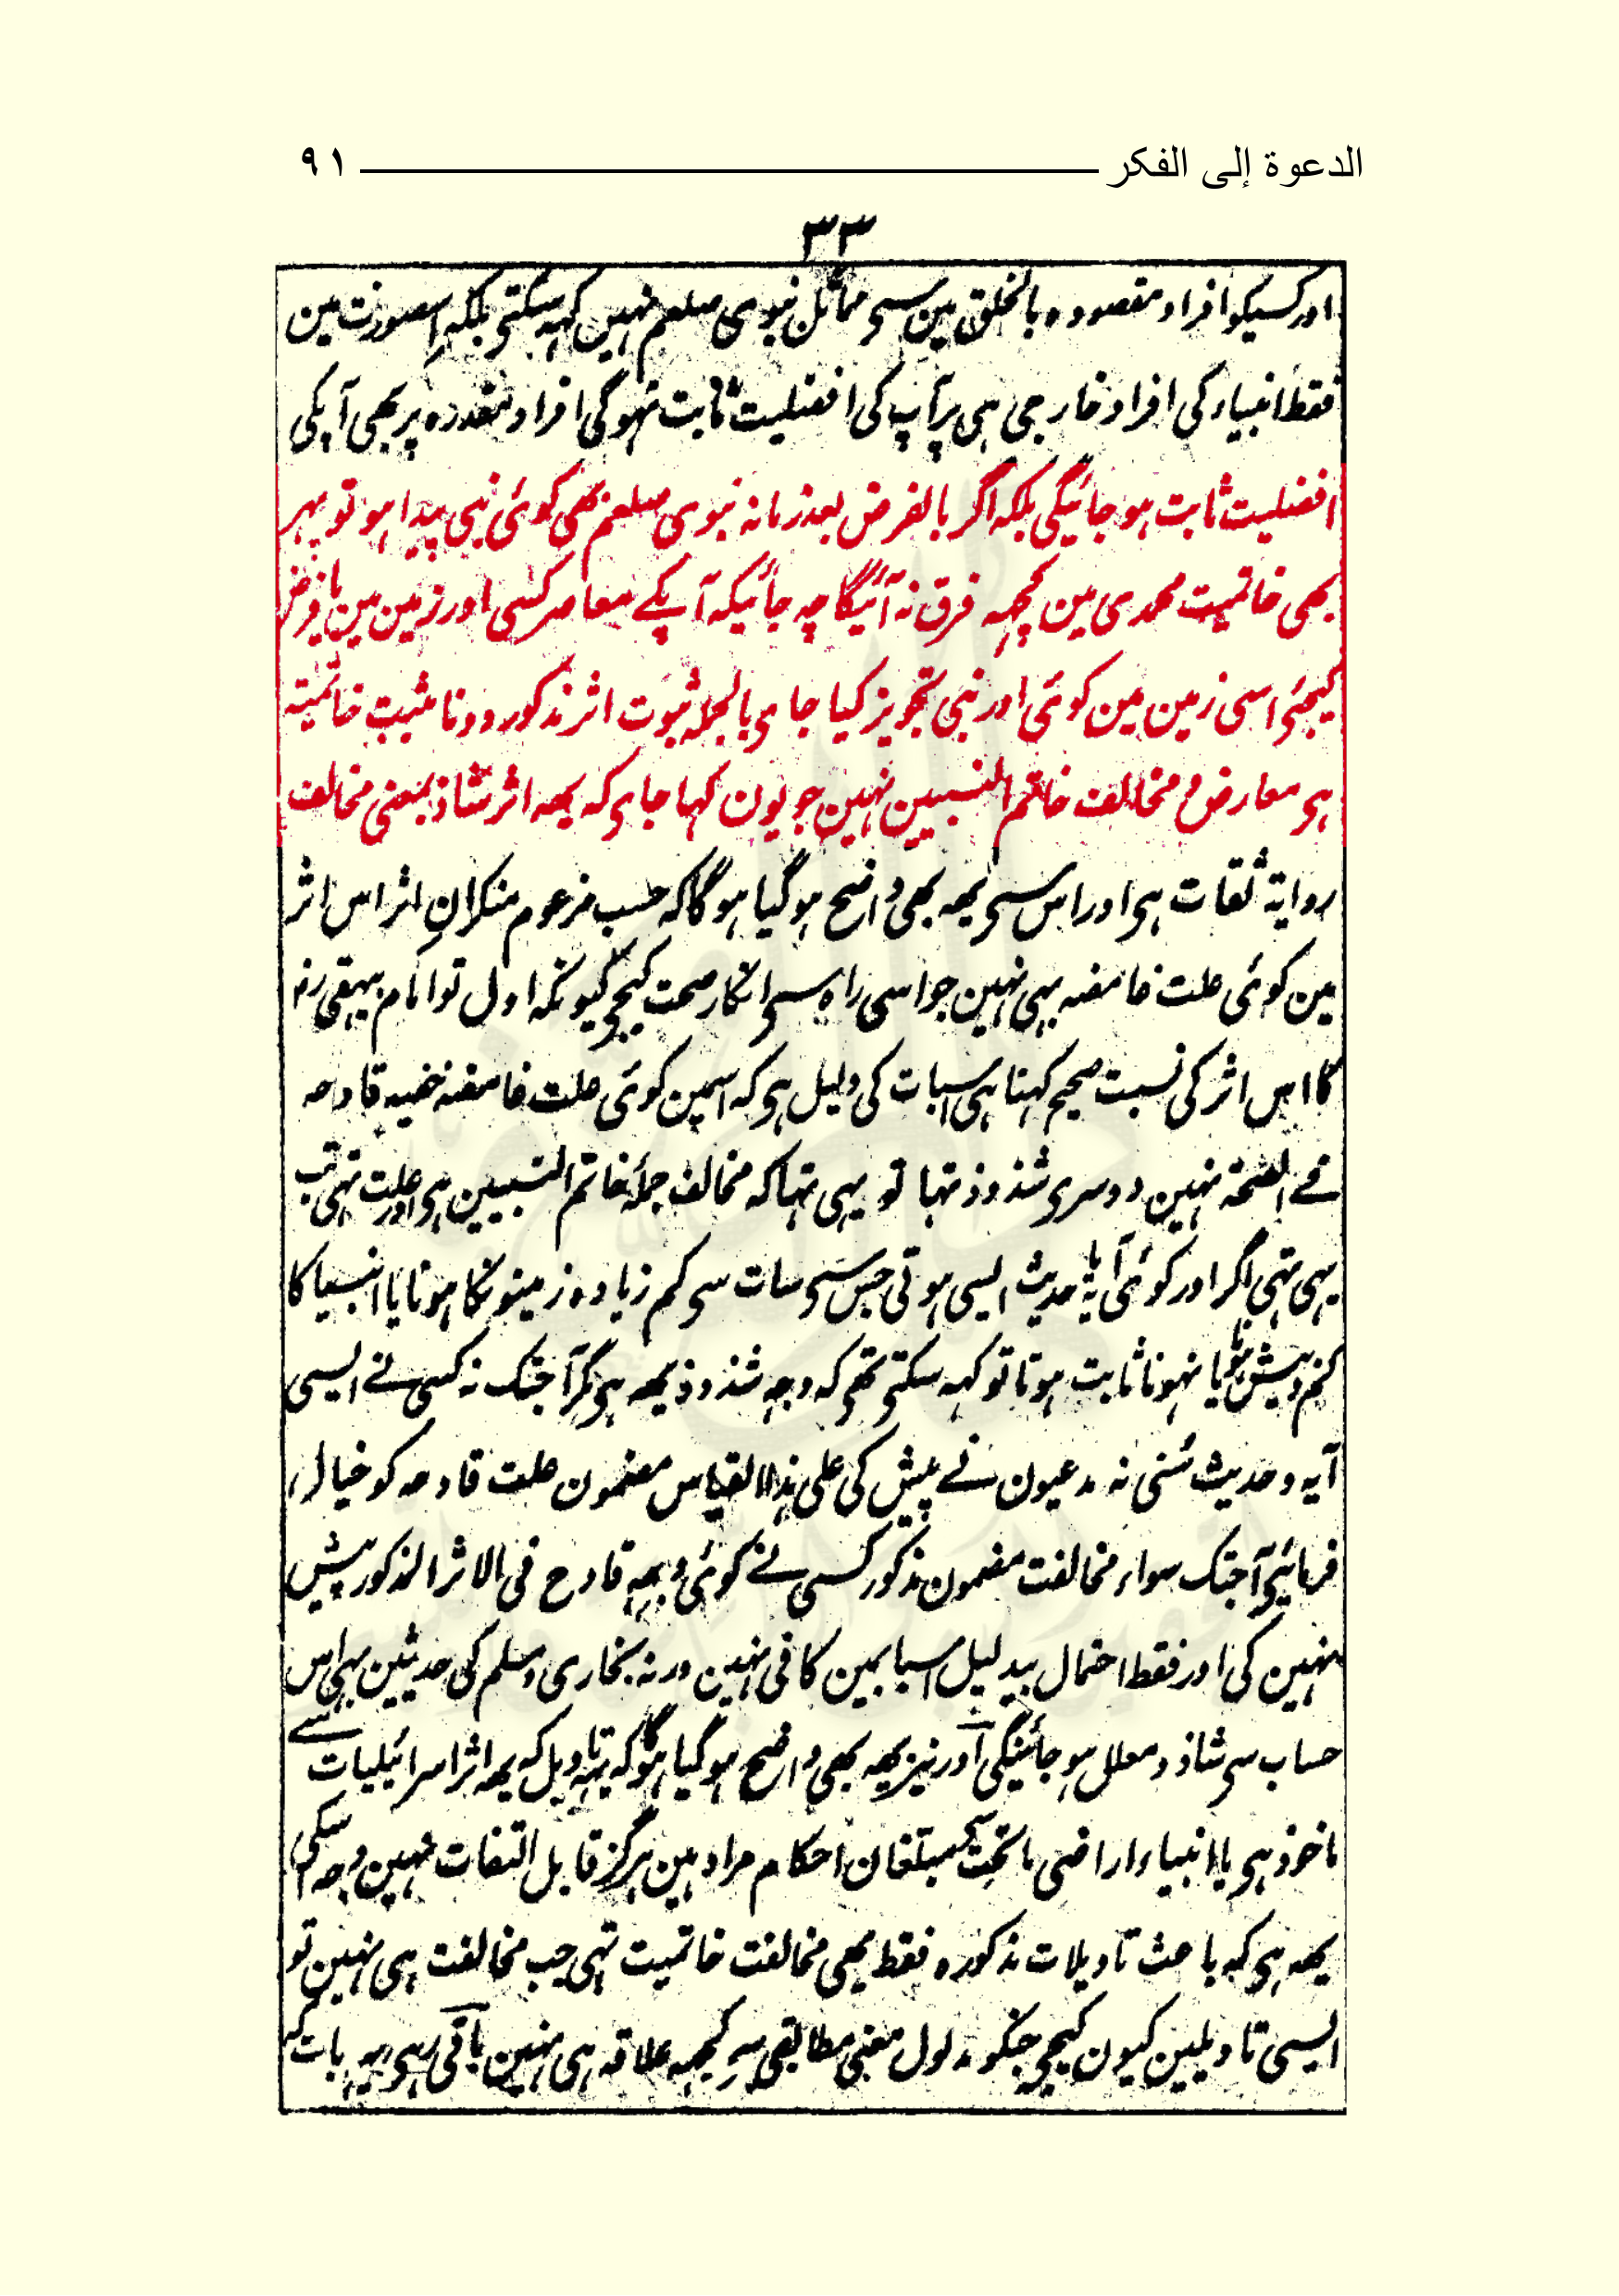 الدعوة إلى الفكر ٩١
٣٣
اور کسیکو افراد مقصودہ بالخلق مین سی مماثل نبوی صلعم نہین کہہ سکتی بلکہ اِسصورت مین
فقط انبیاء کی افراد خارجی ہی پر آپ کی افضلیت ثابت نہوگی افراد مقدرہ پر بھی آپکی
افضلیت ثابت ہو جائیگی بلکہ اگر بالفرض بعد زمانہ نبوی صلعم بھی کوئی نبی پیدا ہو تو پہر
بھی خاتمیت محمدی مین کچہہ فرق نہ آئیگا چہ جائیکہ آپکے معاصر کسی اور زمین مین یا فرض
کیجئی اسی زمین مین کوئی اور نبی تجویز کیا جای بالجملہ ثبوت اثر مذکور دونا مثبت خاتمیۃ
ہی معارض و مخالف خاتم النبیین نہین جو یون کہا جای کہ یھہ اثر شاذ بمعنی مخالف
روایۃ ثقات ہی اور اس سی یھہ بھی واضح ہو گیا ہوگا کہ حسب مزعوم منکرانِ اثر اس اثر
مین کوئی علت غامضہ بہی نہین جو اسی راہ سی انکار صحت کیجی کیونکہ اول تو امام بیہقی رہ
کا اس اثر کی نسبت صحیح کہنا ہی اسبات کی دلیل ہی کہ اسمین کوئی علت غامضہ خفیہ قادحہ
فے الصحۃ نہین دوسری شذوذ تہا تو یہی تہا کہ مخالف جملہ خاتم النبیین ہی اور علت تہی تب
یہی تہی اگر اور کوئی آیۃ یا حدیث ایسی ہوتی جس سی سات سی کم زیادہ زمینونکا ہونا یا انبیا کا
کم و بیش ہونا یا نہونا ثابت ہوتا تو کہہ سکتی تھی کہ وجہ شذوذ یھہ ہی مگر آجتک نہ کسی نے ایسی
آیہ و حدیث سُنی نہ مدعیون نے پیش کی علی ہذا القیاس مضمون علت قادحہ کو خیال
فرمائیی آجتک سواء مخالفت مضمون مذکور کسی نے کوئی وجہہ قادح فی الاثر المذکور پیش
نہین کی اور فقط احتمال بیدلیل اسبابمین کافی نہین ورنہ بخاری و مسلم کی حدیثین بہی اس
حساب سی شاذ و معلل ہو جائینگی اور نیز یھہ بھی واضح ہو گیا ہوگا کہ یہہ تاویل کہ یھہ اثر اسرائیلیات سے
ماخوذ ہی یا انبیاء اراضی ماتحت سی مبلغان احکام مراد ہین ہرگز قابل التفات نہین وجہ اسکی
یھہ ہی کہ باعث تاویلات مذکورہ فقط یھی مخالفت خاتمیت تہی جب مخالفت ہی نہین تو
ایسی تاویلین کیون کیجی جنکو مدلول معنی مطابقی سی کچہہ علاقہ ہی نہین باقی رہی یہہ بات کہ